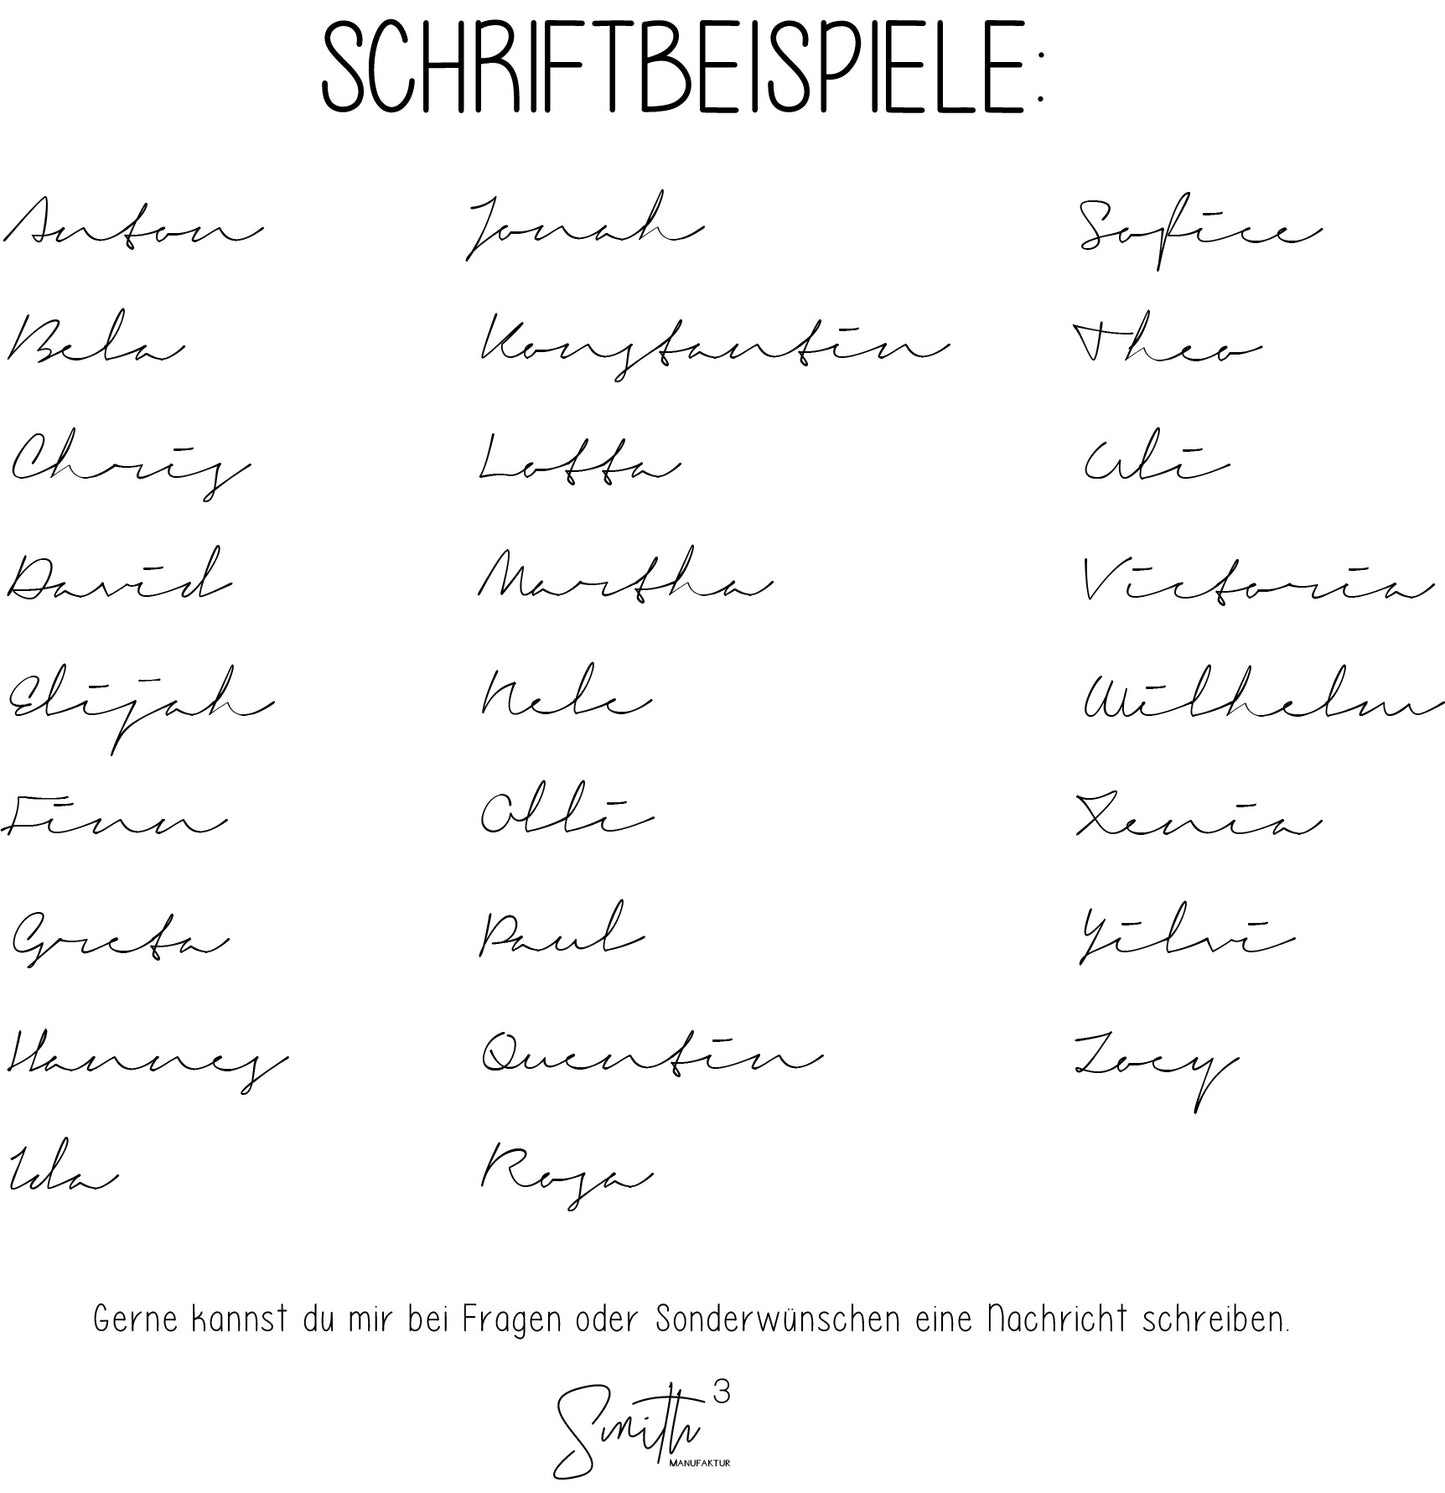 SCHRIFTBEISPIELE:
Anton
Bela
Chris
David
Elijah
Finn
Greta
Hannes
Ida
Jonah
Konstantin
Lotta
Martha
Nele
Olli
Paul
Quentin
Rosa
Sofiee
Theo
Uli
Victoria
Wilhelm
Xenia
Yilvi
Zoey
Gerne kannst du mir bei Fragen oder Sonderwünschen eine Nachricht schreiben.
Smith 3
MANUFAKTUR